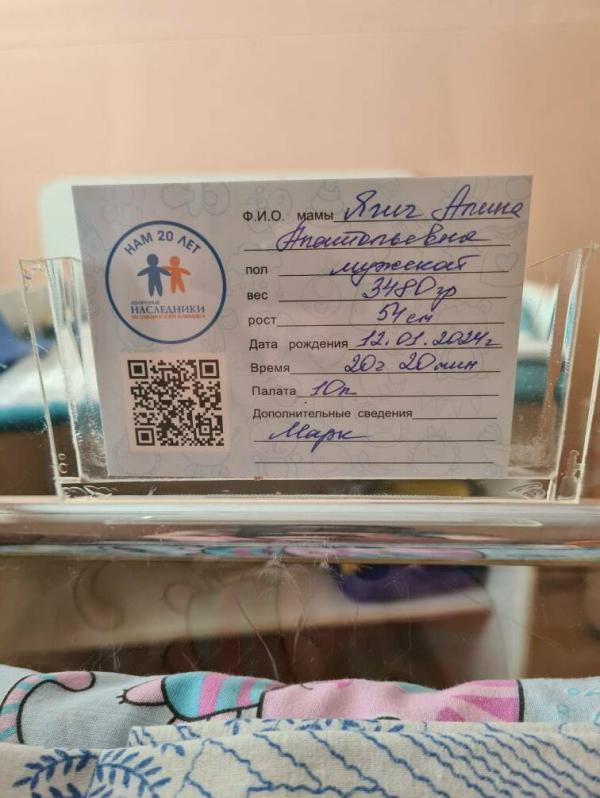 НАМ 20 ЛЕТ
ЗДОРОВЫЕ
НАСЛЕДНИКИ
Ф.И.О. мамы Ягич Алина
Анатольевна
пол мужской
вес 3480 гр
рост 54 см
Дата рождения 12.01.2024г
Время 20ч 20мин
Палата 10п
Дополнительные сведения
Марк